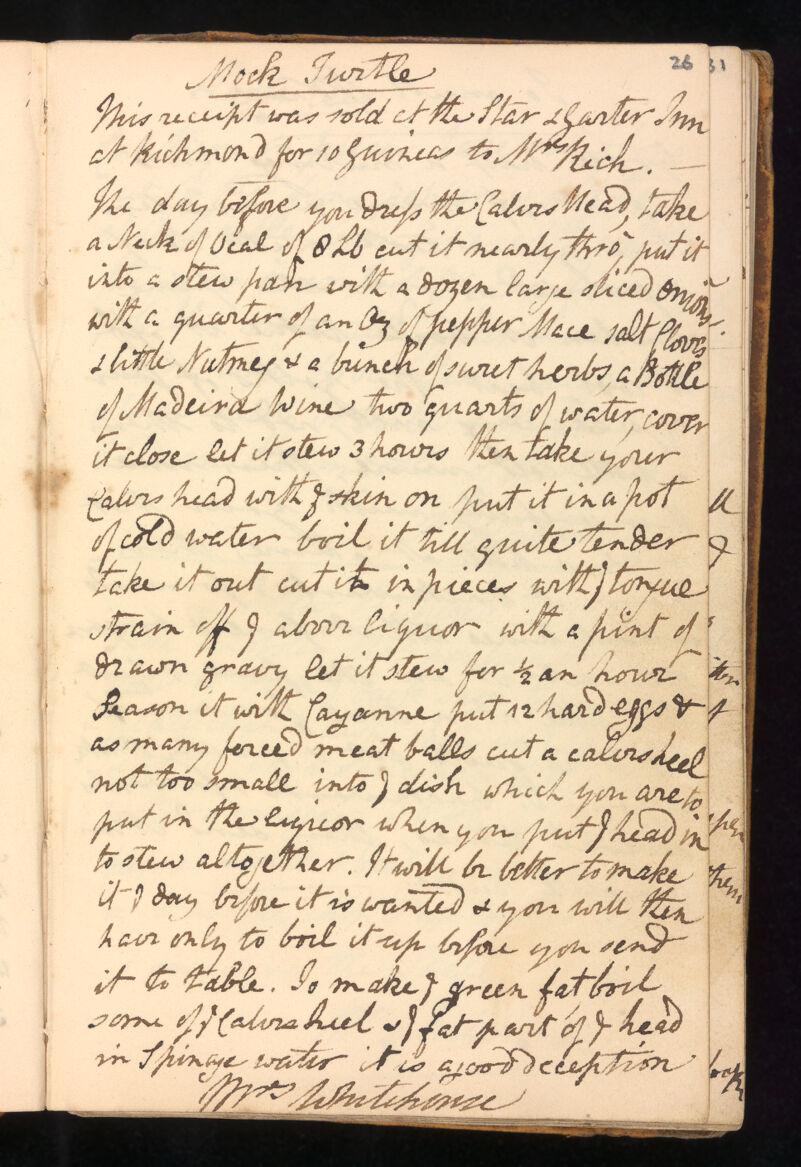 26 31
Mock Turtle
This receipt was sold at the Star & Garter Inn
at Richmond for 10 Guineas to Mrs Rich. —
The day before you dress the Calvs Head, take
a Neck of Veal of 8 Lb cut it nearly thro', put it
into a stew pan with a dozen large sliced onions
with a quarter of an Oz of pepper Mace salt Cloves
& little Nutmeg & a bunch of sweet herbs, a Bottle
of Madeira Wine two quarts of water, cover
it close let it stew 3 hours then take your
Calvs head with ye skin on put it in a pot
of cold water boil it till quite tender
take it out cut it in pieces with ye tongue
strain off ye above liquor with a pint of
drawn gravy let it stew for ½ an hour
Season it with Cayanne put 12 hard eggs &
as many forced meat balls cut a calvs heel
not too small into ye dish which you are to
put in the liquor when you put ye head in
to stew altogether. It will be better to make
it ye day before it is wanted & you will then
have only to boil it up before you send
it to table. To make ye green fat boil
some of ye Calvs heel & ye fat part of ye head
in Spinage water it is a good deception
Mrs Whitehouse